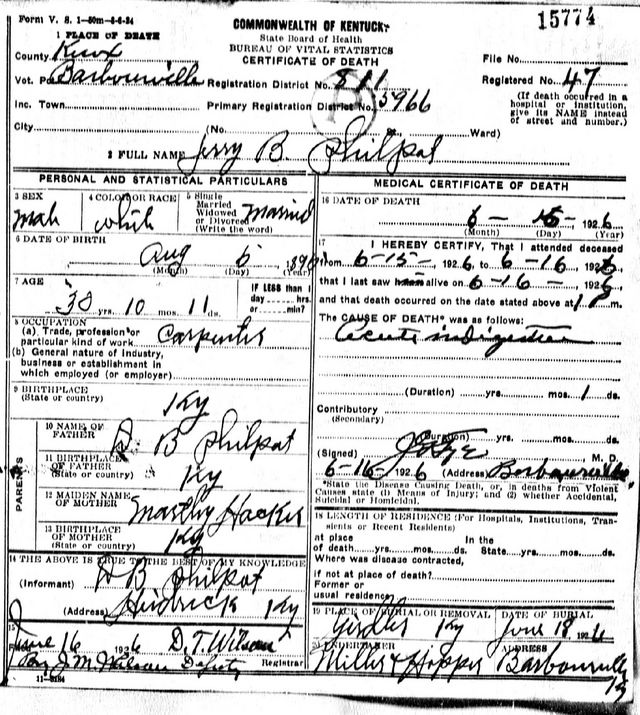 Form V. S. 1-50m-6-6-24
15774
COMMONWEALTH OF KENTUCKY
State Board of Health
BUREAU OF VITAL STATISTICS
CERTIFICATE OF DEATH
1 PLACE OF DEATH
County Knox
Vot. Barbourville Registration District No. 811
Inc. Town Primary Registration District No. 5966
City (No. Ward)
File No.
Registered No. 47
(If death occurred in a hospital or institution, give its NAME instead of street and number.)
2 FULL NAME Jerry B. Philpot
PERSONAL AND STATISTICAL PARTICULARS
3 SEX Male
4 COLOR OR RACE White
5 Single Married Widowed or Divorced (Write the word) Married
6 DATE OF BIRTH
Aug 5
(Month) (Day) (Year)
7 AGE
yrs. 10 mos. 11 ds.
IF LESS than 1 day hrs. or min?
8 OCCUPATION
(a) Trade, profession or particular kind of work Carpenter
(b) General nature of industry, business or establishment in which employed (or employer)
9 BIRTHPLACE
(State or country) Ky
PARENTS
10 NAME OF FATHER B Philpot
11 BIRTHPLACE OF FATHER
(State or country) Ky
12 MAIDEN NAME OF MOTHER Hacker
13 BIRTHPLACE OF MOTHER
(State or country) Ky
14 THE ABOVE IS TRUE TO THE BEST OF MY KNOWLEDGE
(Informant) B Philpot
(Address) Ky
15
June 16 1926 D. T. Wilson
J. M. Wilson Deputy Registrar
11-3184
MEDICAL CERTIFICATE OF DEATH
16 DATE OF DEATH
6 - 1926
(Month) (Day) (Year)
17 I HEREBY CERTIFY, That I attended deceased
from 6-15- 1926 to 6-16- 1926
that I last saw alive on 6-16- 1926
and that death occurred on the date stated above at 1 P m.
The CAUSE OF DEATH* was as follows:
Acute indigestion
(Duration) yrs. mos. 1 ds.
Contributory
(Secondary)
(Duration) yrs. mos. ds.
(Signed) M. D.
6-16- 1926 (Address) Barbourville
*State the Disease Causing Death, or, in deaths from Violent Causes state (1) Means of Injury; and (2) whether Accidental, Suicidal or Homicidal.
18 LENGTH OF RESIDENCE (For Hospitals, Institutions, Transients or Recent Residents)
at place of death yrs. mos. ds. In the State yrs. mos. ds.
Where was disease contracted, if not at place of death?
Former or usual residence
19 PLACE OF BURIAL OR REMOVAL Girdler Ky
DATE OF BURIAL June 18 1926
20 UNDERTAKER Miller & Hopper
ADDRESS Barbourville
Ky